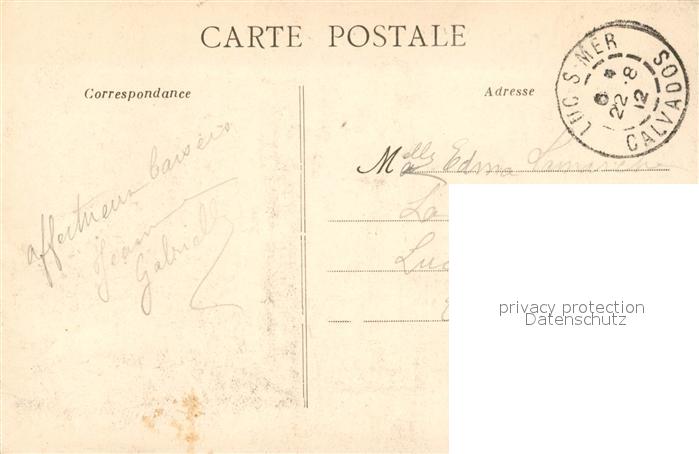 CARTE POSTALE
Correspondance
Adresse
LUC-S-MER
22 - 8
12
CALVADOS
affectueux baisers
Jeanne
Gabrielle
Melle Edma
La
Luc
privacy protection
Datenschutz